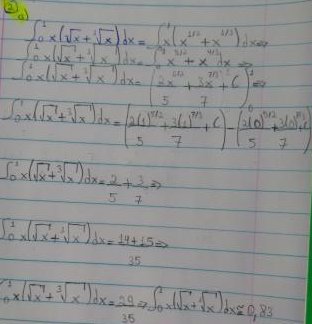 2)
a)
∫₀¹ x(√x + ∛x)dx = ∫₀¹ x(x^{1/2} + x^{1/3})dx ⇒
∫₀¹ x(√x + ∛x)dx = ∫₀¹ x^{3/2} + x^{4/3} dx ⇒
∫₀¹ x(√x + ∛x)dx = (2x^{5/2}/5 + 3x^{7/3}/7 + C)₀¹ ⇒
∫₀¹ x(√x + ∛x)dx = (2(1)^{5/2}/5 + 3(1)^{7/3}/7 + C) - (2(0)^{5/2}/5 + 3(0)^{7/3}/7 + C)
∫₀¹ x(√x + ∛x)dx = 2/5 + 3/7 ⇒
∫₀¹ x(√x + ∛x)dx = 14+15/35 ⇒
∫₀¹ x(√x + ∛x)dx = 29/35 ⇒ ∫₀¹ x(√x + ∛x)dx ≅ 0,83